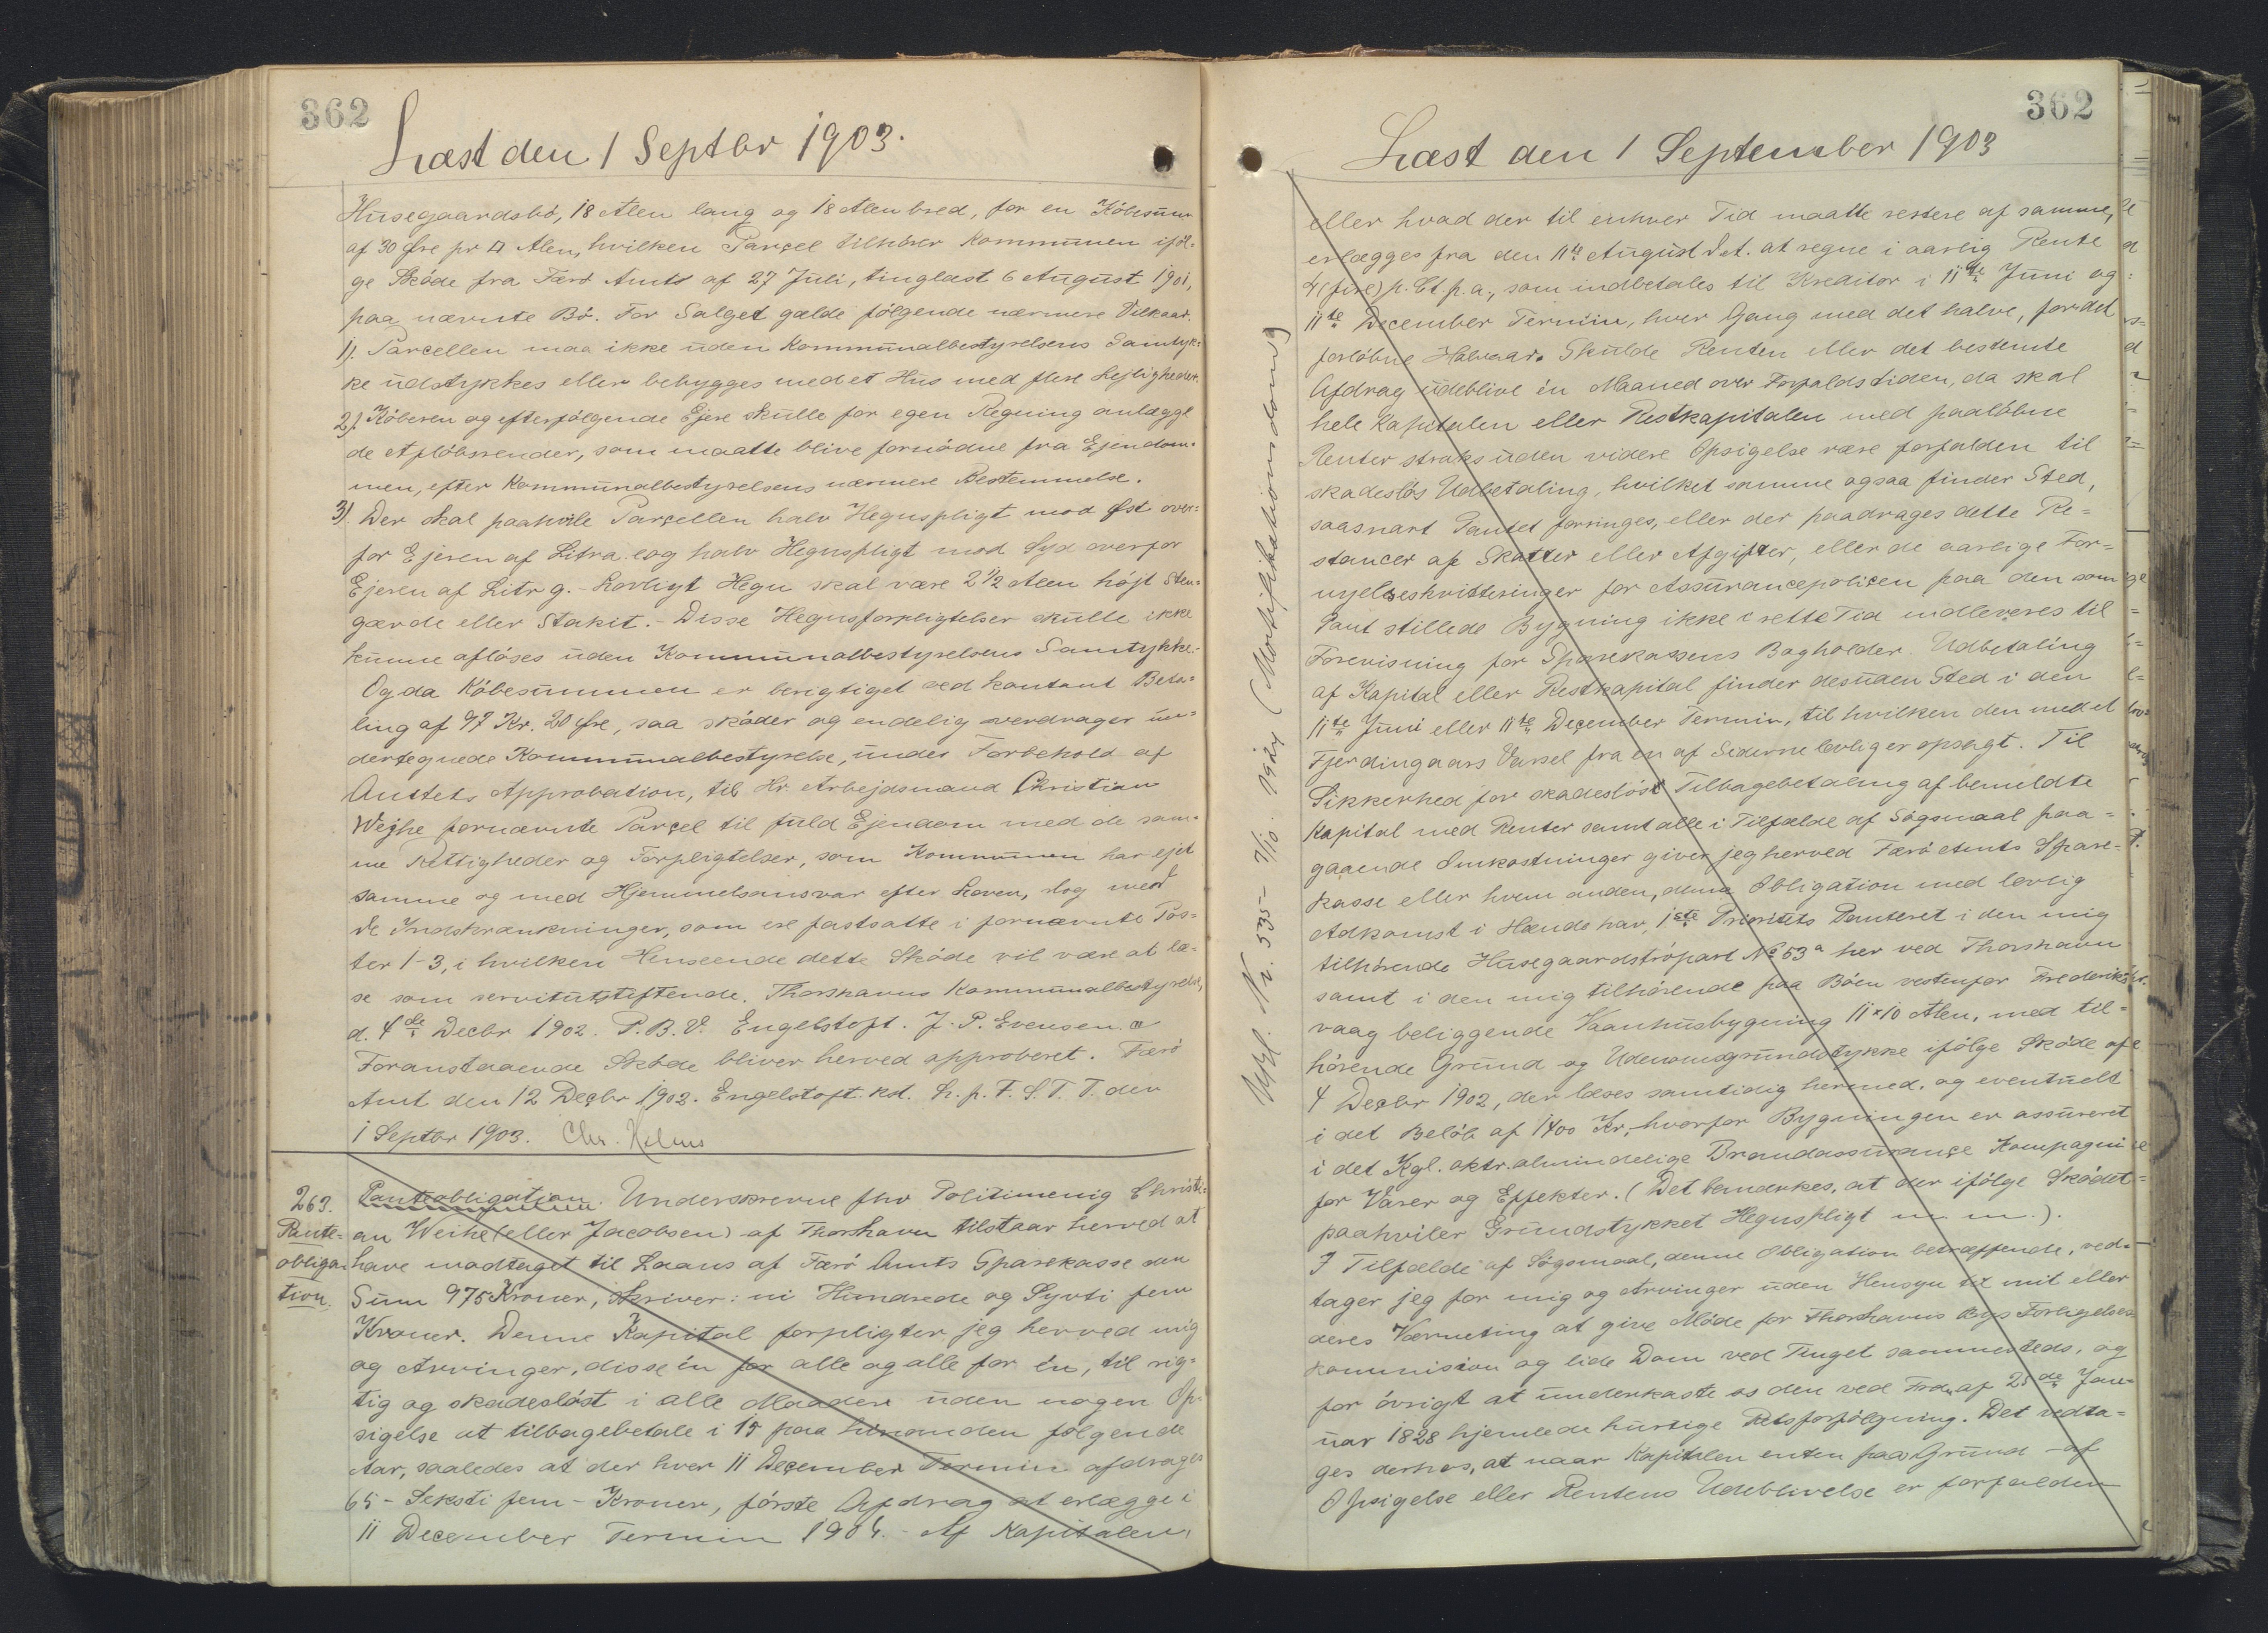 362
Læst den 1 Septbr 1903.
Husegaardsbö, 18 Alen lang og 18 Alen bred, for en Köbesum
af 30 Øre pr □ Alen, hvilken Parcel tilhörer Kommunen iföl-
ge Sköde fra Færö Amt af 27 Juli, tinglæst 6 August 1901,
paa nævnte Bö. For Salget gælde fölgende nærmere Vilkaar.
1). Parcellen maa ikke uden Kommunalbestyrelsens Samtyk-
ke udstykkes eller bebygges med et Hus med flere Lejligheder.
2). Köberen og efterfölgende Ejere skulle for egen Regning anlægge
de Aflöbsrender, som maatte blive fornödne fra Ejendom-
men, efter Kommunalbestyrelsens nærmere Bestemmelse.
3) Der skal paahvile Parcellen halv Hegnspligt mod Øst over-
for Ejeren af Litra eog halv Hegnspligt mod Syd overfor
Ejeren af Litr g. - Lovligt Hegn skal være 2 1/2 Alen höjt Sten-
gærde eller Stakit. - Disse Hegnsforpligtelser skulle ikke
kunne aflöses uden Kommunalbestyrelsens Samtykke.-
Og da Köbesummen er berigtiget ved kontant Beta-
ling af 97 Kr. 20 Øre, saa sköder og endelig overdrager un-
dertegnede Kommunalbestyrelse, under Forbehold af
Amtets Approbation, til Hr. Arbejdsmand Christian
Wejhe fornævnte Parcel til fuld Ejendom med de sam-
me Rettigheder og Forpligtelser, som Kommunen har ejet
samme og med Hjemmelsansvar efter Loven, dog med
de Indskrænkninger, som ere fastsatte i fornævnte Pos-
ter 1-3, i hvilken Henseende dette Sköde vil være at læ-
se som servitutstiftende. Thorshavns Kommunalbestyrelse,
d. 4de Decbr 1902. P. B. V. Engelstoft. J. P. Evensen.
Foranstaaende Sköde bliver herved approberet. Færö
Amt den 12 Decbr 1902. Engelstoft. kst. L. p. F. S. T. T. den
1 Septbr 1903. Chr. Holms
263.
Pante-
obliga-
tion.
Panteobligation. Underskrevne fhv Politimenig Christi-
an Weihe (eller Jacobsen) af Thorshavn tilstaar herved at
have modtaget til Laans af Færö Amts Sparekasse den
Sum 975 Kroner, skriver: ni Hundrede og Syvti fem
Kroner. Denne Kapital forpligter jeg herved mig
og Arvinger, disse én for alle og alle for én, til rig-
tig og skadeslöst i alle Maader uden nogen Op-
sigelse at tilbagebetale i 15 paa hinanden fölgende
Aar, saaledes at der hver 11 December Termin afdrages
65 - Seksti fem - Kroner, förste Afdrag at erlægge i
11 December Termin 1904. - Af Kapitalen,
362
Læst den 1 September 1903
eller hvad der til enhver Tid maatte restere af samme,
erlægges fra den 11te August d.A. at regne i aarlig Rente
4 (fire) p. Ct. p. a., som indbetales til Kreditor i 11te Juni og
11te December Termin, hver Gang med det halve, for det
forlöbne Halvaar. Skulde Renten eller det bestemte
Afdrag udeblive én Maaned over Forfaldstiden, da skal
hele Kapitalen eller Restkapitalen med paalöbne
Renter straks uden videre Opsigelse være forfalden til
skadeslös Udbetaling, hvilket samme ogsaa finder Sted,
saasnart Pantet forringes, eller der paadrages dette Re-
stancer af Skatter eller Afgifter, eller de aarlige For-
nyelseskvitteringer for Assurancepolicen paa den som
Pant stillede Bygning ikke i rette Tid indleveres til
Forevisning for Sparekassens Bogholder. Udbetaling
af Kapital eller Restkapital finder desuden Sted i den
11te Juni eller 11te December Termin, til hvilken den med et
Fjerdingaars Varsel fra en af Siderne lovlig er opsagt. Til
Sikkerhed for skadeslöst Tilbagebetaling af bemeldte
Kapital med Renter samt alle i Tilfælde af Sögsmaal paa-
gaaende Omkostninger giver jeg herved Færö Amts Spare-
kasse eller hvem anden, denne Obligation med lovlig
Adkomst i Hænde har, 1ste Prioritets Panteret i den mig
tilhörende Husegaardströpart No 53a her ved Thorshavn
samt i den mig tilhörende paa Böen vestenfor Frederiks-
vaag beliggende Vaanhusbygning 11 x 10 Alen, med til-
hörende Grund og Udenomsgrundstykke ifölge Sköde af
4 Decbr 1902, der læses samtidig hermed, og eventuelt
i det Belöb af 1400 Kr, hvorfor Bygningen er assureret
i det Kgl. oktr. almindelige Brandassurançe Kompagni
for Varer og Effekter. (Det bemærkes, at der ifölge Sködet
paahviler Grundstykket Hegnspligt m m.).
I Tilfælde af Sögsmaal, denne Obligation betræffende, ved-
tager jeg for mig og Arvinger uden Hensyn til mit eller
deres Værneting at give Möde for Thorshavns Bys Forligelses-
kommission og lide Dom ved Tinget sammesteds, og
for övrigt at underkaste os den ved Frdn. af 25de Janu-
uar 1828 hjemlede hurtige Retsforfölgning. Det vedta-
ges derhos, at naar Kapitalen enten paa Grund af
Opsigelse eller Rentens Udeblivelse er forfalden
Nr. 535- 7/10. 1924 (Mortifikationsdom)